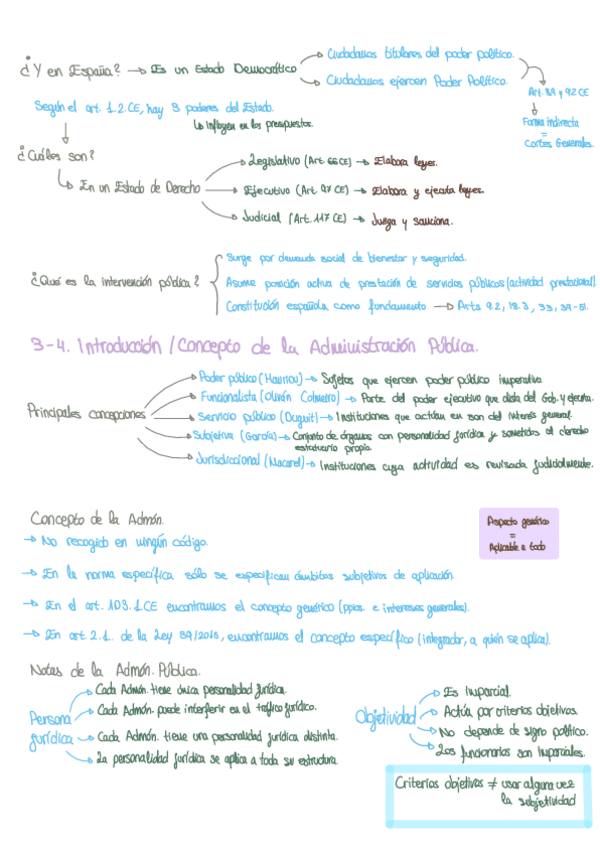 ¿Y en España? → Es un Estado Democrático → Ciudadanos titulares del poder político.
→ Ciudadanos ejercen Poder Político.
Según el art. 1.2 CE, hay 3 poderes del Estado.
↳ influyen en los presupuestos.
Forma indirecta
=
Cortes Generales.
¿Cuáles son?
En un Estado de Derecho
Legislativo (Art 66 CE) → Elabora leyes.
Ejecutivo (Art 97 CE) → Elabora y ejecuta leyes.
Judicial (Art. 117 CE) → Juzga y sanciona.
¿Qué es la intervención pública?
Surge por demanda social de bienestar y seguridad.
Asume posición activa de prestación de servicios públicos (actividad prestacional)
Constitución española como fundamento → Arts 9.2, 18.3, 33, 39-51.
3-4. Introducción / Concepto de la Administración Pública.
Principales concepciones
Poder público (Hauriou) → Sujetos que ejercen poder público imperativo.
Funcionalista (Oliván Colmeiro) → Parte del poder ejecutivo que dista del Gob. y ejecuta.
Servicio público (Duguit) → Instituciones que actúan en son del interés general.
Subjetiva (García) → Conjunto de órganos con personalidad jurídica y sometidos al derecho
estatutario propio.
Jurisdiccional (Macarel) → Instituciones cuya actividad es revisada judicialmente.
Concepto de la Admón.
→ No recogido en ningún código.
→ En la norma específica sólo se especifican ámbitos subjetivos de aplicación.
→ En el art. 103.1 CE encontramos el concepto genérico (ppios. e intereses generales).
→ En art 2.1. de la Ley 39/2015, encontramos el concepto específico (integrador, a quién se aplica).
Aspecto genérico
=
Aplicable a todo
Notas de la Admón. Pública.
Persona
jurídica
Cada Admón. tiene única personalidad jurídica.
Cada Admón. puede interferir en el tráfico jurídico.
Cada Admón. tiene una personalidad jurídica distinta.
La personalidad jurídica se aplica a toda su estructura.
Objetividad
Es imparcial.
Actúa por criterios objetivos.
No depende de signo político.
Los funcionarios son imparciales.
Criterios objetivos ≠ usar alguna vez
la subjetividad